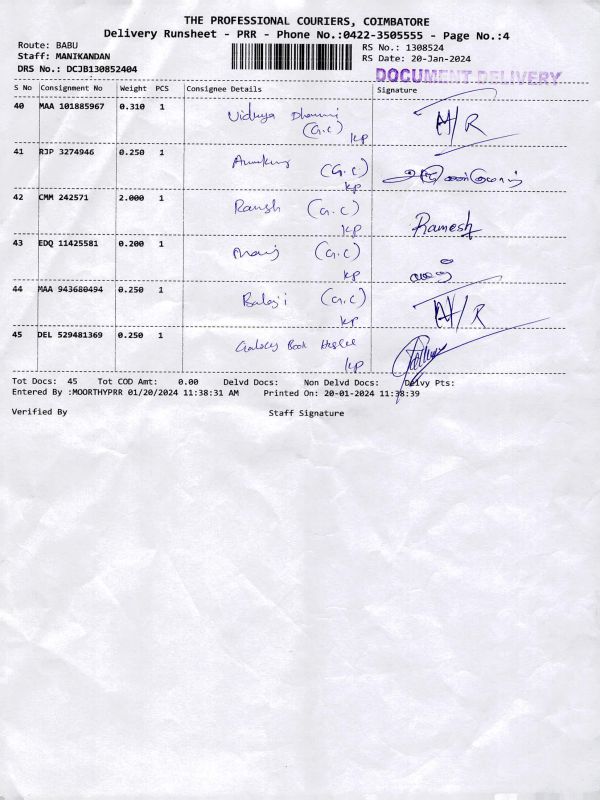 THE PROFESSIONAL COURIERS, COIMBATORE
Delivery Runsheet - PRR - Phone No.:0422-3505555 - Page No.:4
Route: BABU
Staff: MANIKANDAN
DRS No.: DCJB130852404
RS No.: 1308524
RS Date: 20-Jan-2024
DOCUMENT DELIVERY
S No Consignment No Weight PCS Consignee Details Signature
40 MAA 101885967 0.310 1 Vidhya
(G.C)
KP
A/R
41 RJP 3274946 0.250 1 (G.C)
KP
42 CMM 242571 2.000 1 Ramesh (G.C)
KP
Ramesh
43 EDQ 11425581 0.200 1 (G.C)
KP
44 MAA 943680494 0.250 1 Balaji (G.C)
KP
A/R
45 DEL 529481369 0.250 1 Galaxy Book
KP
Tot Docs: 45 Tot COD Amt: 0.00 Delvd Docs: Non Delvd Docs: Delvy Pts:
Entered By :MOORTHYPRR 01/20/2024 11:38:31 AM Printed On: 20-01-2024 11:38:39
Verified By Staff Signature